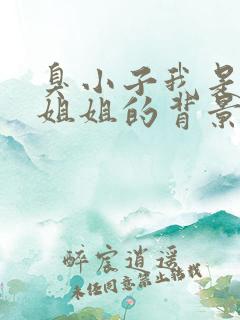 臭小子我是
姐姐的背景
醉宸逍遥
未任同意禁止转载